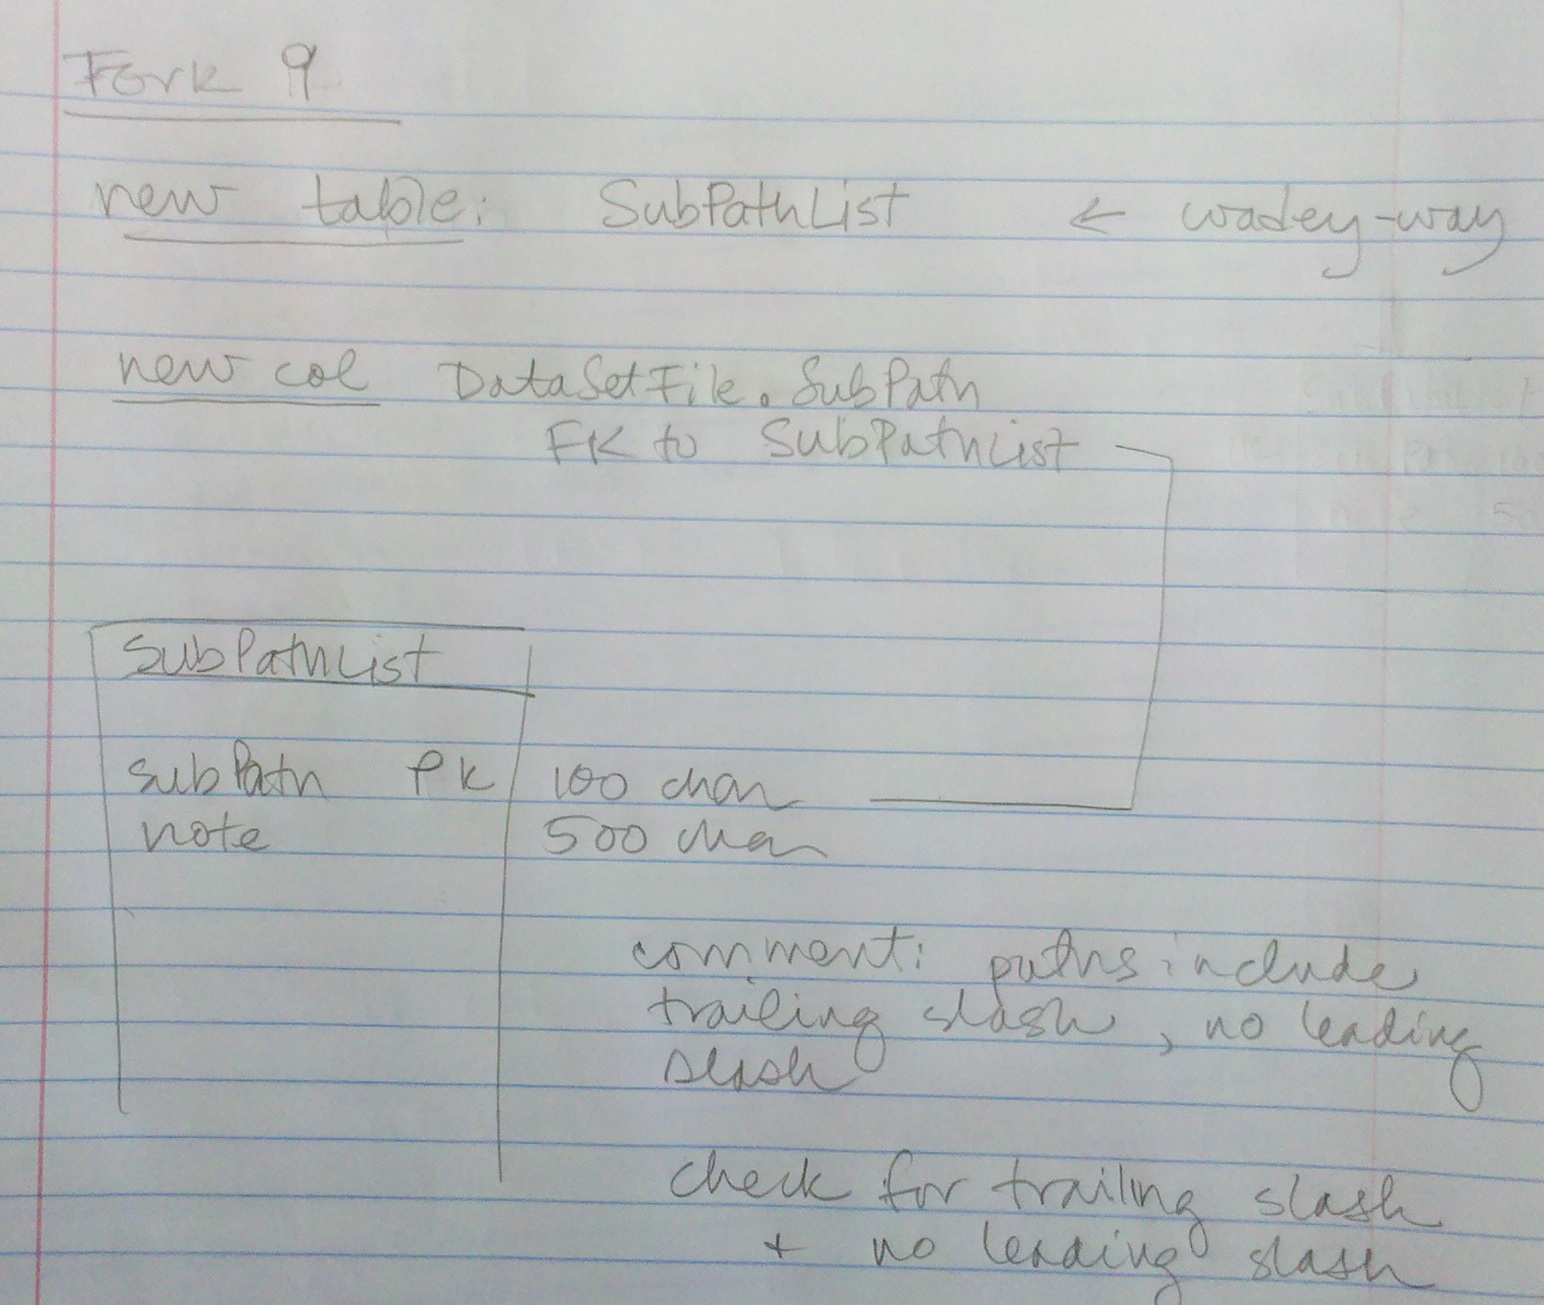 Fork 9
new table: SubPathList ← wadey-way
new col DataSetFile.SubPath
FK to SubPathList
SubPathList
subPath PK 100 char
note 500 char
comment: paths include
trailing slash, no leading
slash
check for trailing slash
+ no leading slash